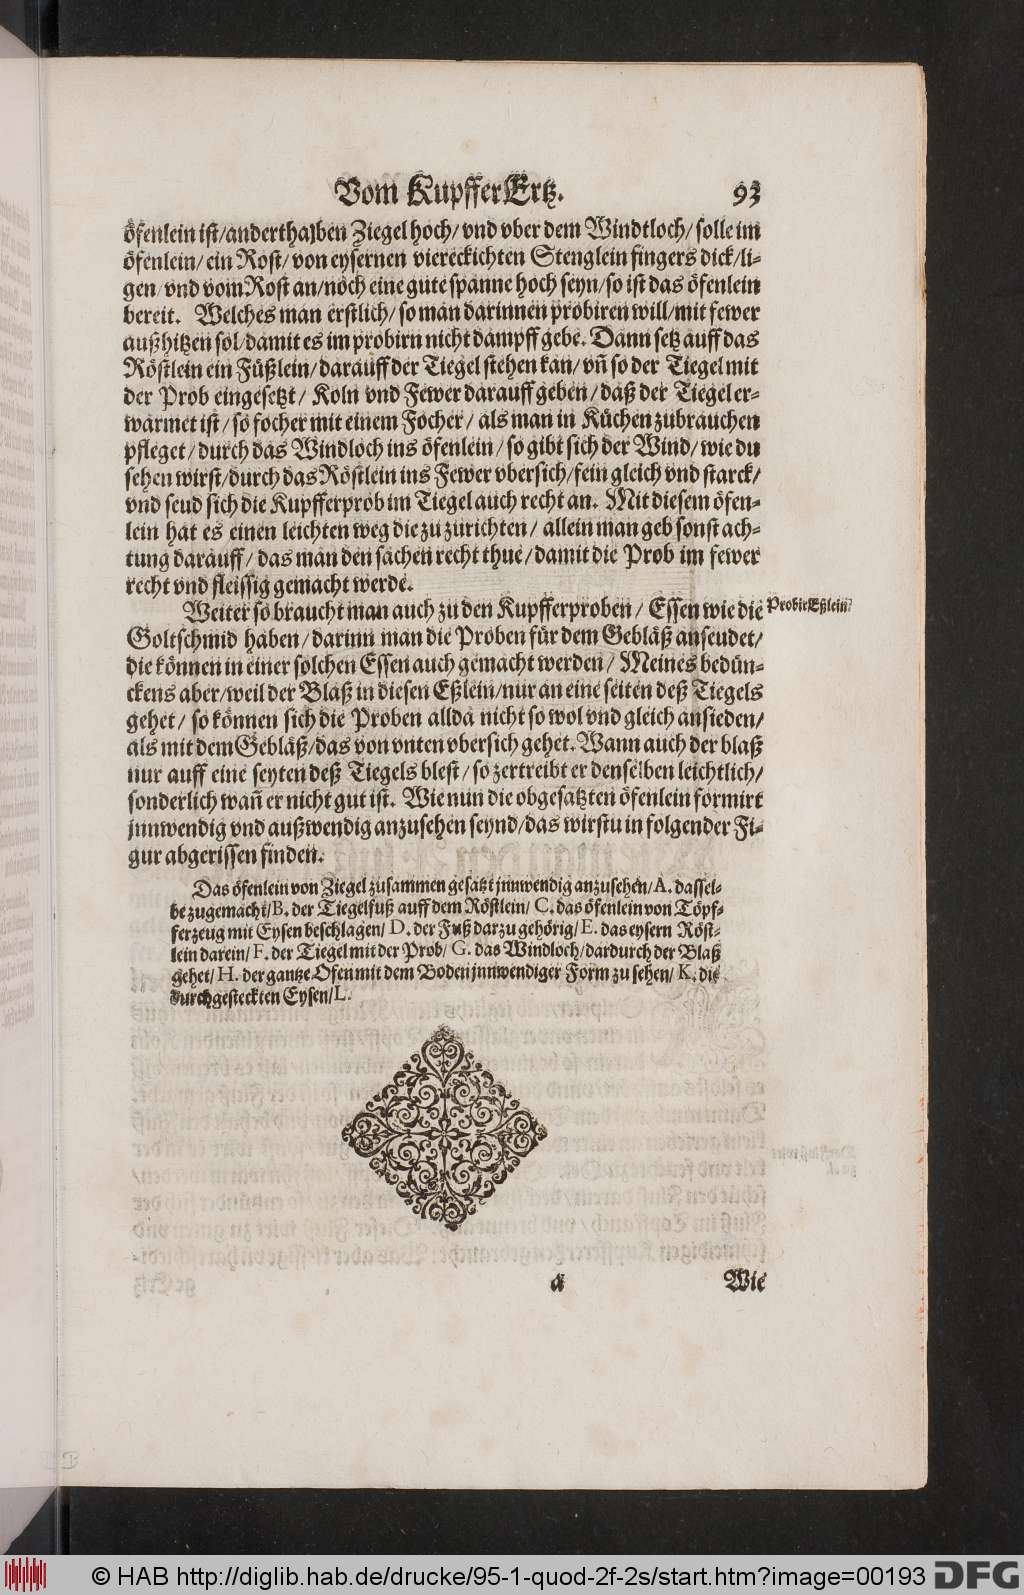 Vom KupfferErtz. 93
öfenlein ist/anderthalben Ziegel hoch/ vnd vber dem Windtloch/ solle im
öfenlein/ ein Rost/ von eysernen viereckichten Stenglein fingers dick/li-
gen/ vnd vom Rost an/noch eine gute spanne hoch seyn/so ist das öfenlein
bereit. Welches man erstlich/ so man darinnen probiren will/mit fewer
außhitzen sol/damit es im probirn nicht dampff gebe. Dann setz auff das
Röstlein ein Füßlein/darauff der Tiegel stehen kan/ vñ so der Tiegel mit
der Prob eingesetzt/ Koln vnd Fewer darauff geben/ daß der Tiegel er-
warmet ist/ so focher mit einem Focher/ als man in Küchen zubrauchen
pfleget/ durch das Windloch ins öfenlein/ so gibt sich der Wind/ wie du
sehen wirst/durch das Röstlein ins Fewer vbersich/fein gleich vnd starck/
vnd seud sich die Kupfferprob im Tiegel auch recht an. Mit diesem öfen-
lein hat es einen leichten weg die zu zurichten/ allein man geb sonst ach-
tung darauff/ das man den sachen recht thue/damit die Prob im fewer
recht vnd fleissig gemacht werde.
Weiter so braucht man auch zu den Kupfferproben/ Essen wie die
ProbirEßlein.
Goltschmid haben/ darinn man die Proben für dem Gebläß anseudet/
die können in einer solchen Essen auch gemacht werden/ Meines bedün-
ckens aber/weil der Blaß in diesen Eßlein/nur an eine seiten deß Tiegels
gehet/ so können sich die Proben allda nicht so wol vnd gleich ansieden/
als mit dem Gebläß/das von vnten vbersich gehet. Wann auch der blaß
nur auff eine seyten deß Tiegels blest/ so zertreibt er denselben leichtlich/
sonderlich wañ er nicht gut ist. Wie nun die obgesatzten öfenlein formirt
jnnwendig vnd außwendig anzusehen seynd/das wirstu in folgender Fi-
gur abgerissen finden.
Das öfenlein von Ziegel zusammen gesatzt jnnwendig anzusehen/A. dassel-
be zugemacht/B. der Tiegelfuß auff dem Röstlein/ C. das öfenlein von Töpf-
ferzeug mit Eysen beschlagen/ D. der Fuß darzu gehörig/ E. das eysern Röst-
lein darein/ F. der Tiegel mit der Prob/ G. das Windloch/dardurch der Blaß
gehet/ H. der gantze Ofen mit dem Boden jnnwendiger Form zu sehen/ K. die
durchgesteckten Eysen/L.
a Wie
© HAB http://diglib.hab.de/drucke/95-1-quod-2f-2s/start.htm?image=00193 DFG